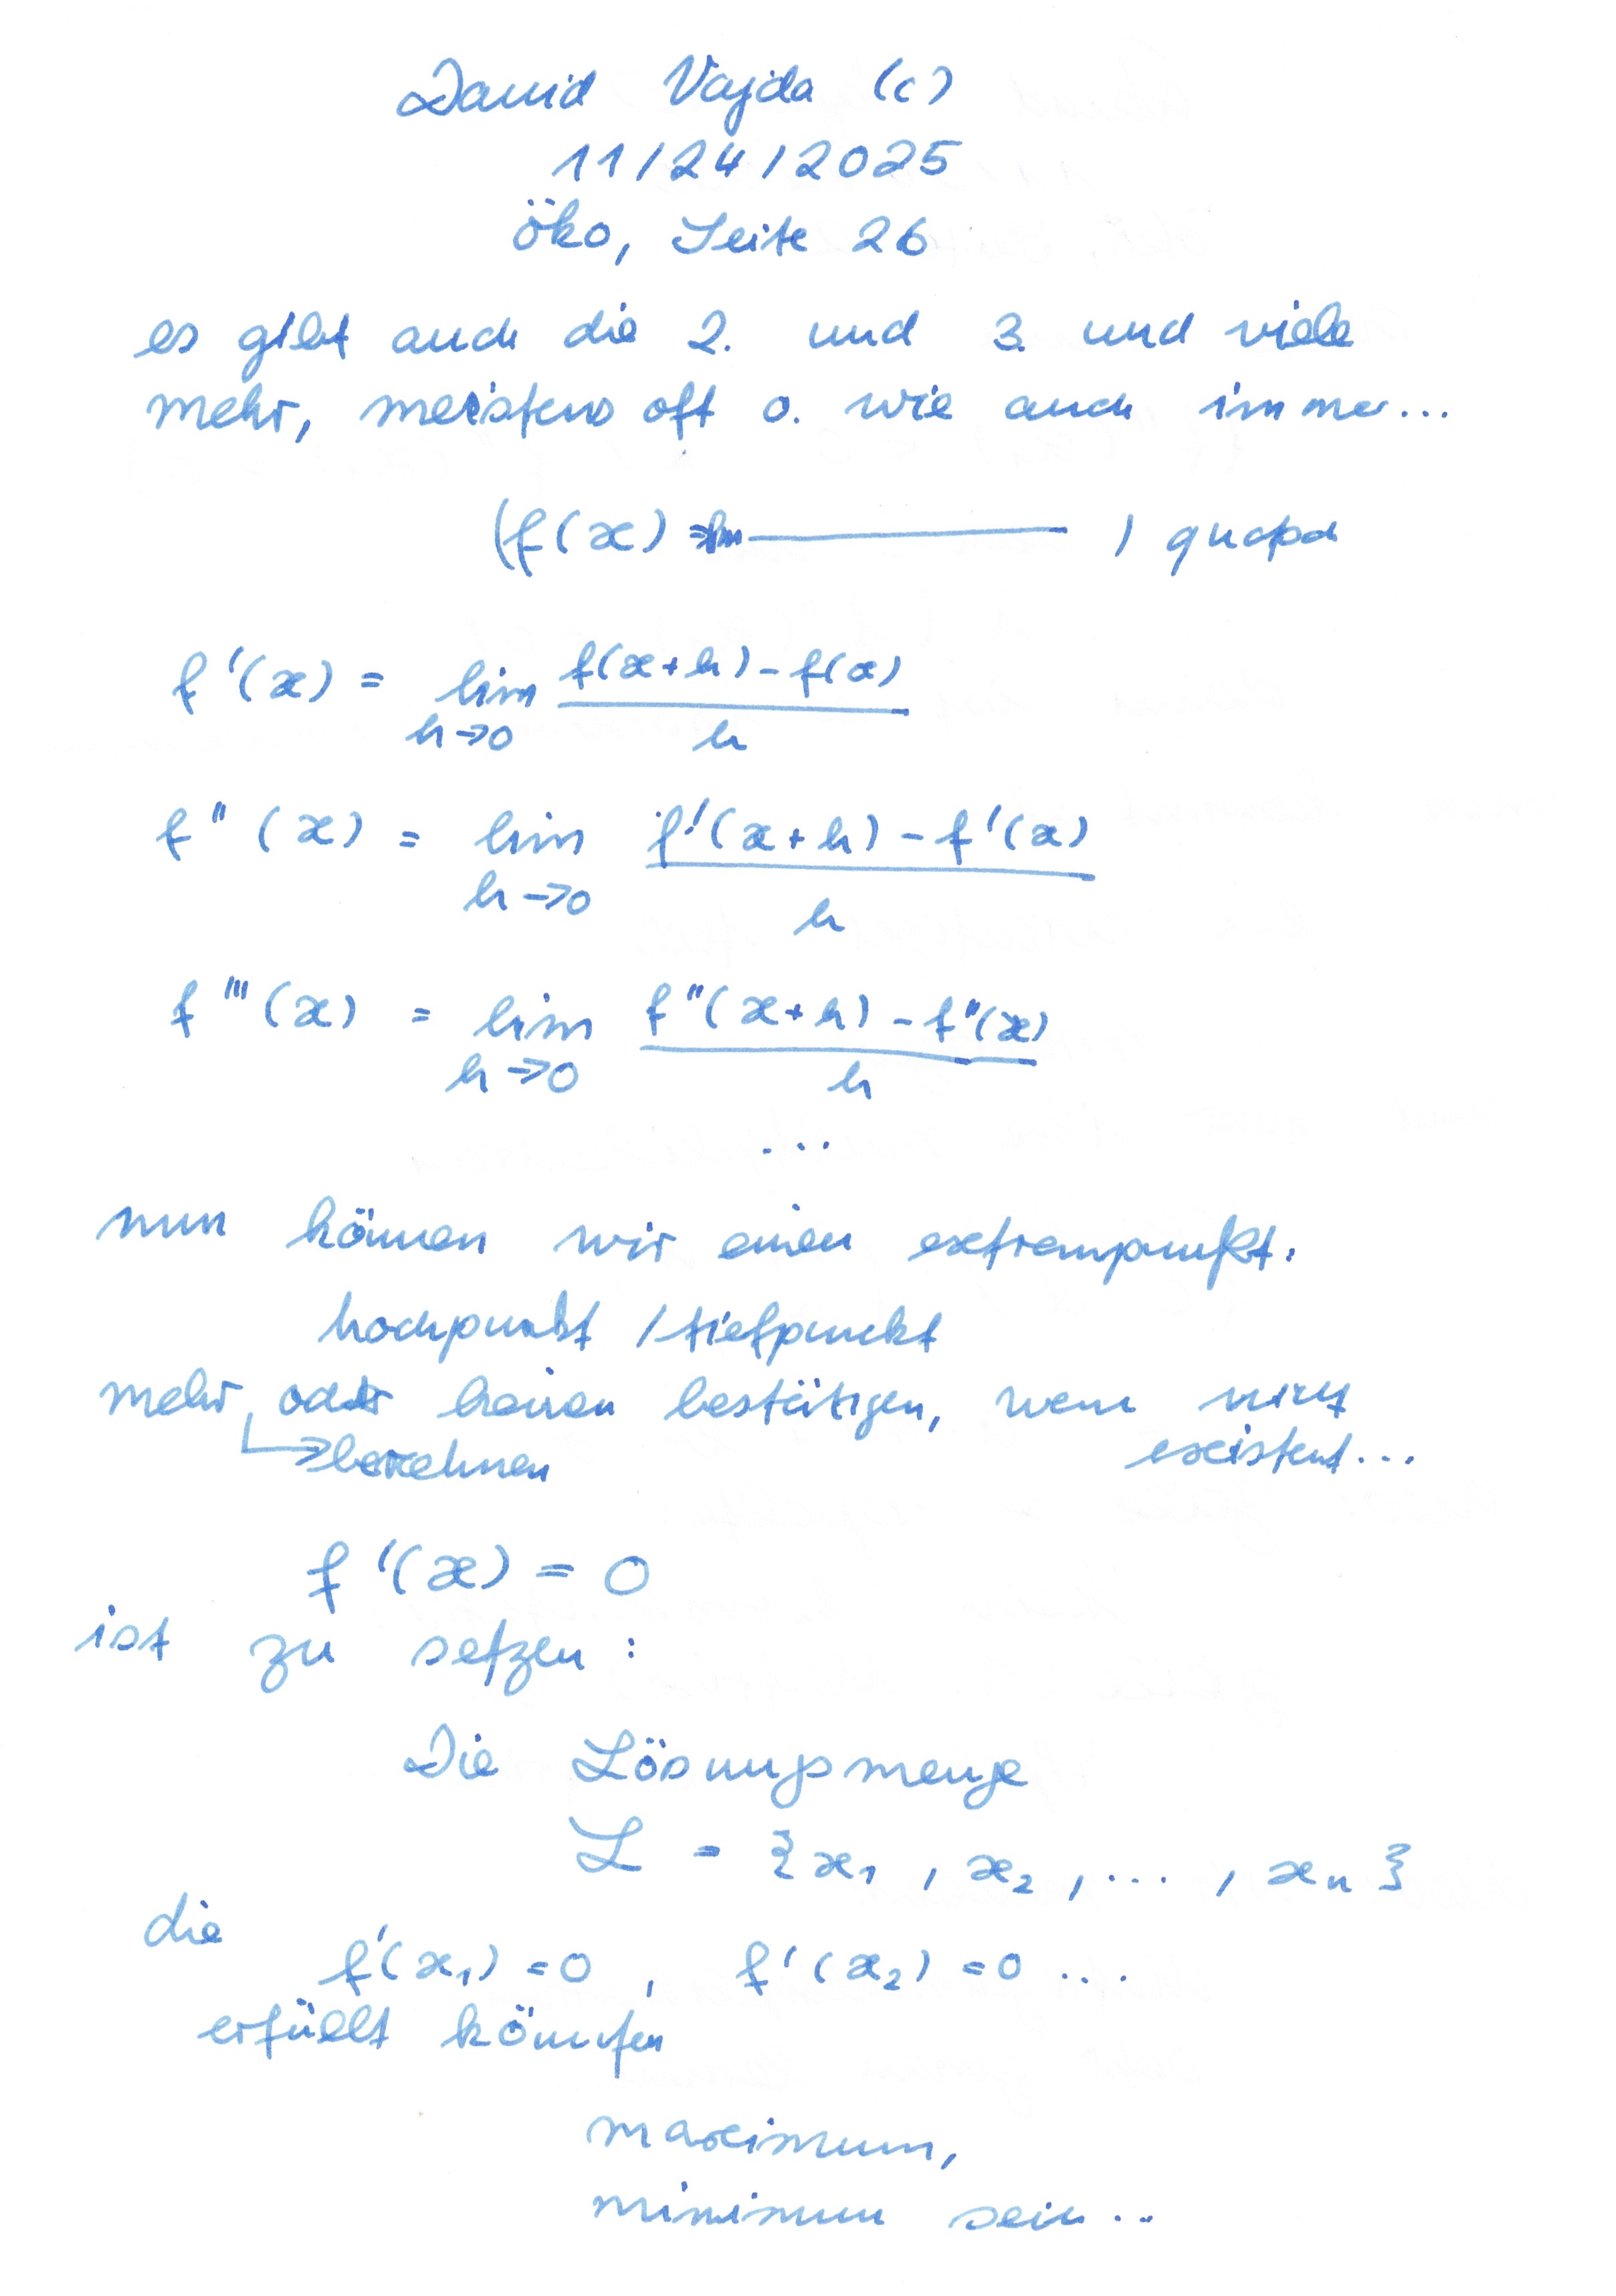 David Vajda (c)
11/24/2025
öko, Seite 26
es gibt auch die 2. und 3. und viele
mehr, meistens oft o. wie auch immer...
(f(x) ) quapa
f'(x) = lim f(x+h)-f(x)
h→0 h
f''(x) = lim f'(x+h)-f'(x)
h→0 h
f'''(x) = lim f''(x+h)-f''(x)
h→0 h
...
nun können wir einen extrempunkt.
hochpunkt / tiefpunkt
mehr, oder keinen bestätigen, wenn nicht
→ berechnen existent...
f'(x) = 0
ist zu setzen:
Die Lösungsmenge
L = {x₁, x₂, ..., xₙ}
die
f'(x₁) = 0, f'(x₂) = 0 ...
erfüllt
maximum,
minimum sein...